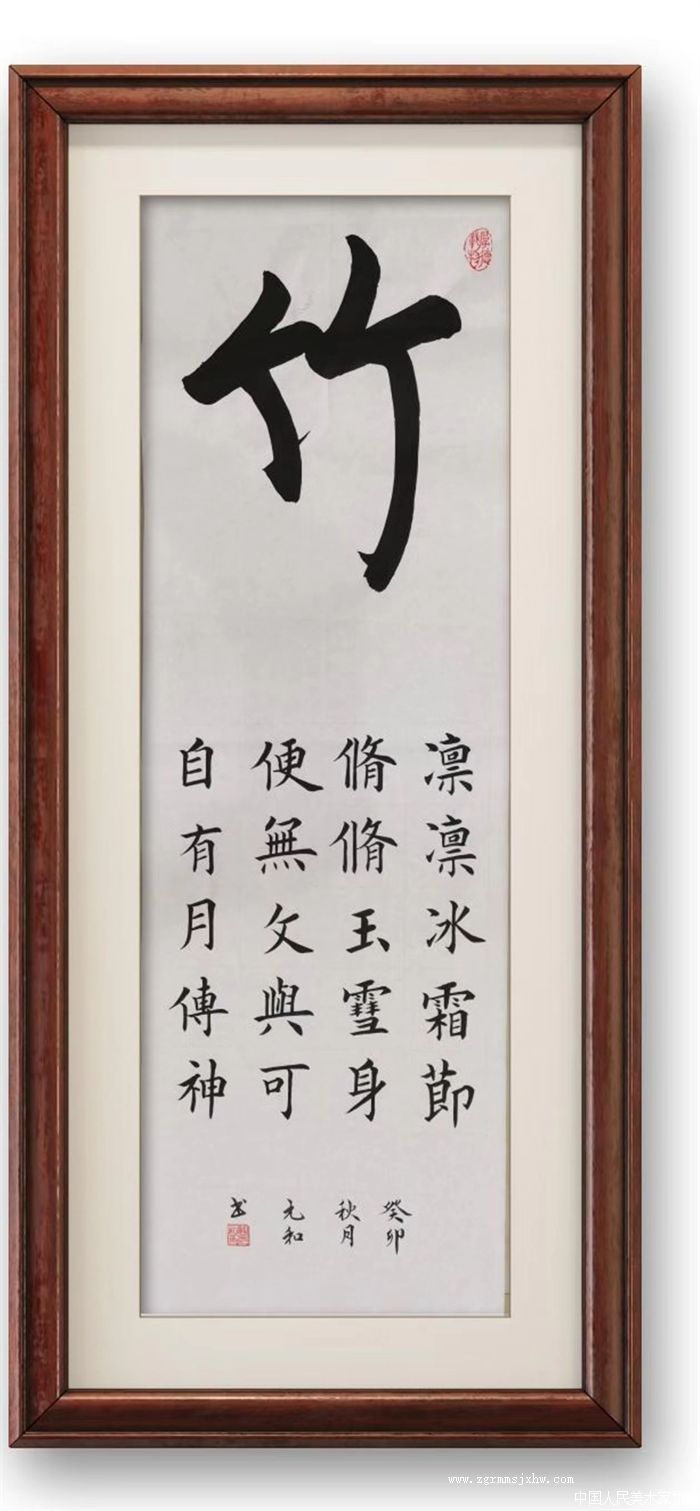 竹
凛凛冰霜節
脩脩玉雪身
便無文與可
自有月傳神
癸卯
秋月
元和
书
www.zgrmmsjxhw.com